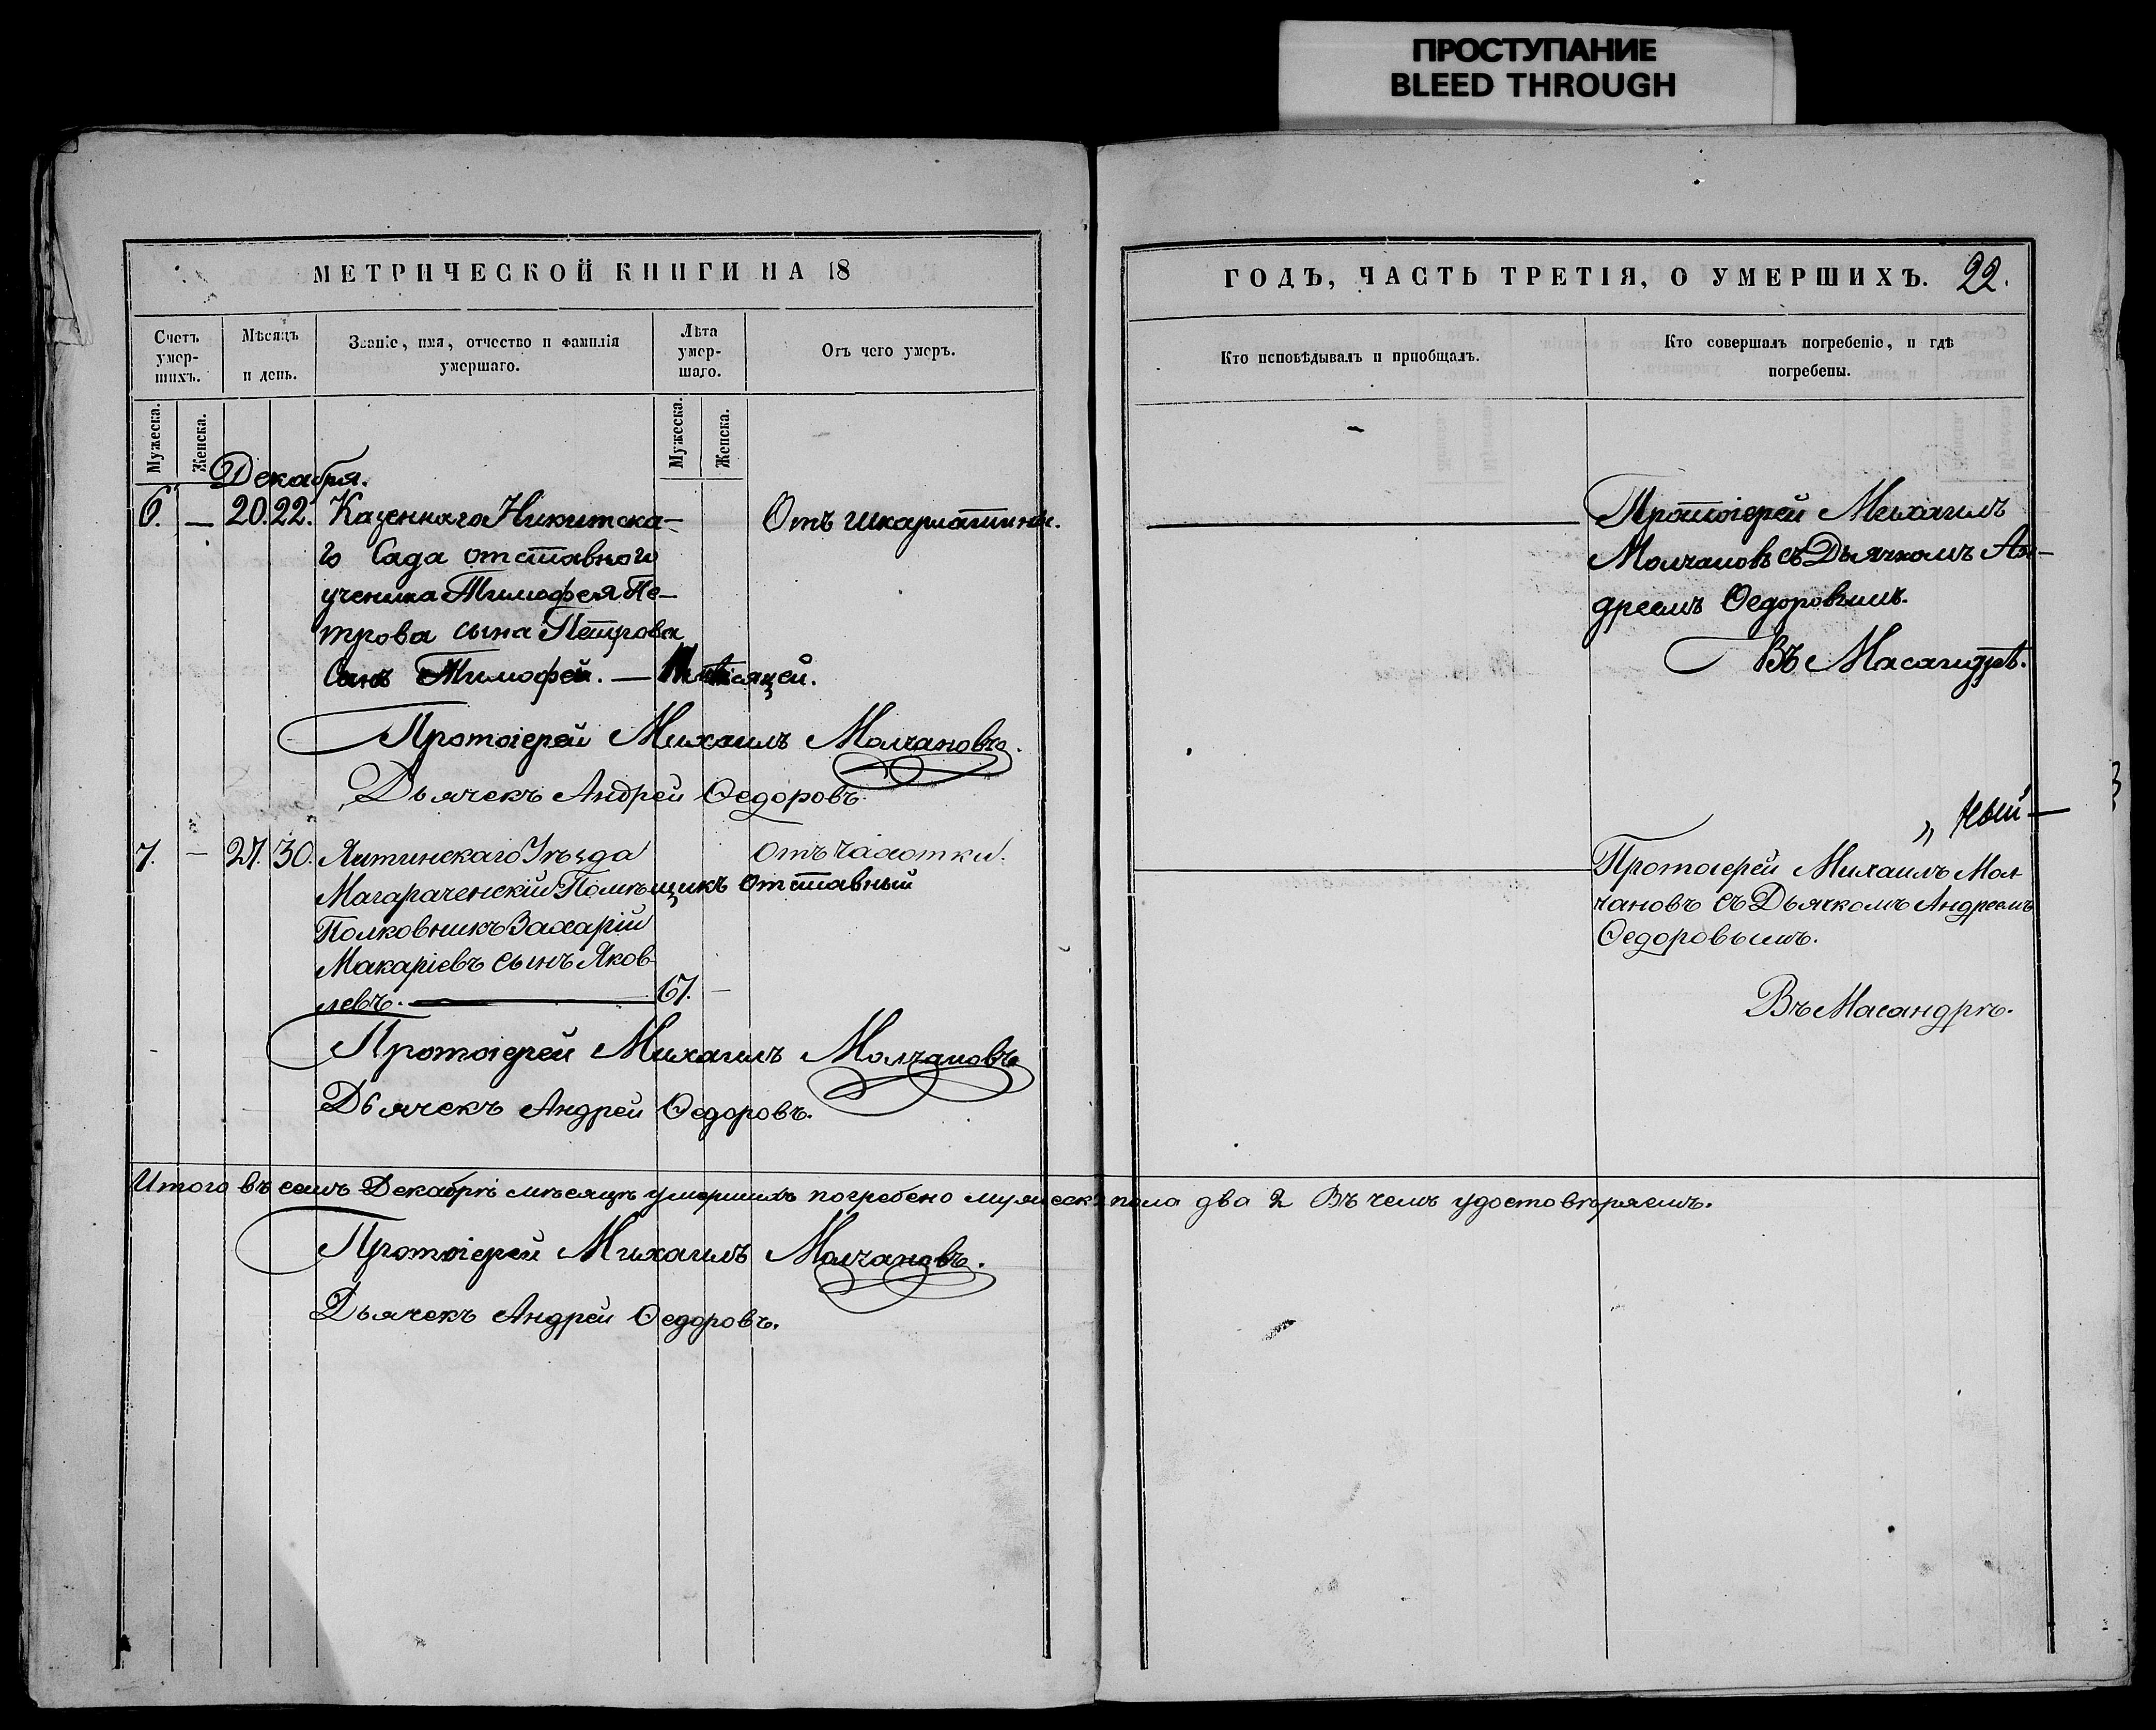 ПРОСТУПАНИЕ
BLEED THROUGH
МЕТРИЧЕСКОЙ КНИГИ НА 18
Счетъ умер-шихъ.
Мѣсяцъ и день.
Званіе, имя, отчество и фамилія умершаго.
Лѣта умер-шаго.
Отъ чего умеръ.
Мужеска.
Женска.
Мужеска.
Женска.
Декабря.
6. — 20. 22. Казеннаго Никитска- Отъ шкарлатины.
го Сада отставного
ученика Тимофея Пе-
трова сына Петрова
Сынъ Тимофей. — мѣсяцей.
Протоіерей Михаилъ Молчановъ.
Дьячекъ Андрей Ѳедоровъ.
7. — 27. 30. Ялтинскаго Уѣзда Отъ чахотки.
Магараченскій Помѣщикъ отставный
Полковникъ Захарій
Макаріевъ сынъ Яков-
левъ. 67. —
Протоіерей Михаилъ Молчановъ
Дьячекъ Андрей Ѳедоровъ.
Итого въ семъ Декабрѣ мѣсяцѣ умершихъ погребено мужеска пола два 2 Въ чемъ удостовѣряемъ.
Протоіерей Михаилъ Молчановъ.
Дьячекъ Андрей Ѳедоровъ.
ГОДЪ, ЧАСТЬ ТРЕТІЯ, О УМЕРШИХЪ. 22.
Кто исповѣдывалъ и пріобщалъ.
Кто совершалъ погребеніе, и гдѣ
погребены.
Протоіерей Михаилъ
Молчановъ съ Дьячкомъ Ан-
дреемъ Ѳедоровымъ.
Въ Масандрѣ.
„ ный —
Протоіерей Михаилъ Мол
чановъ съ Дьячкомъ Андреемъ
Ѳедоровымъ.
Въ Масандрѣ.